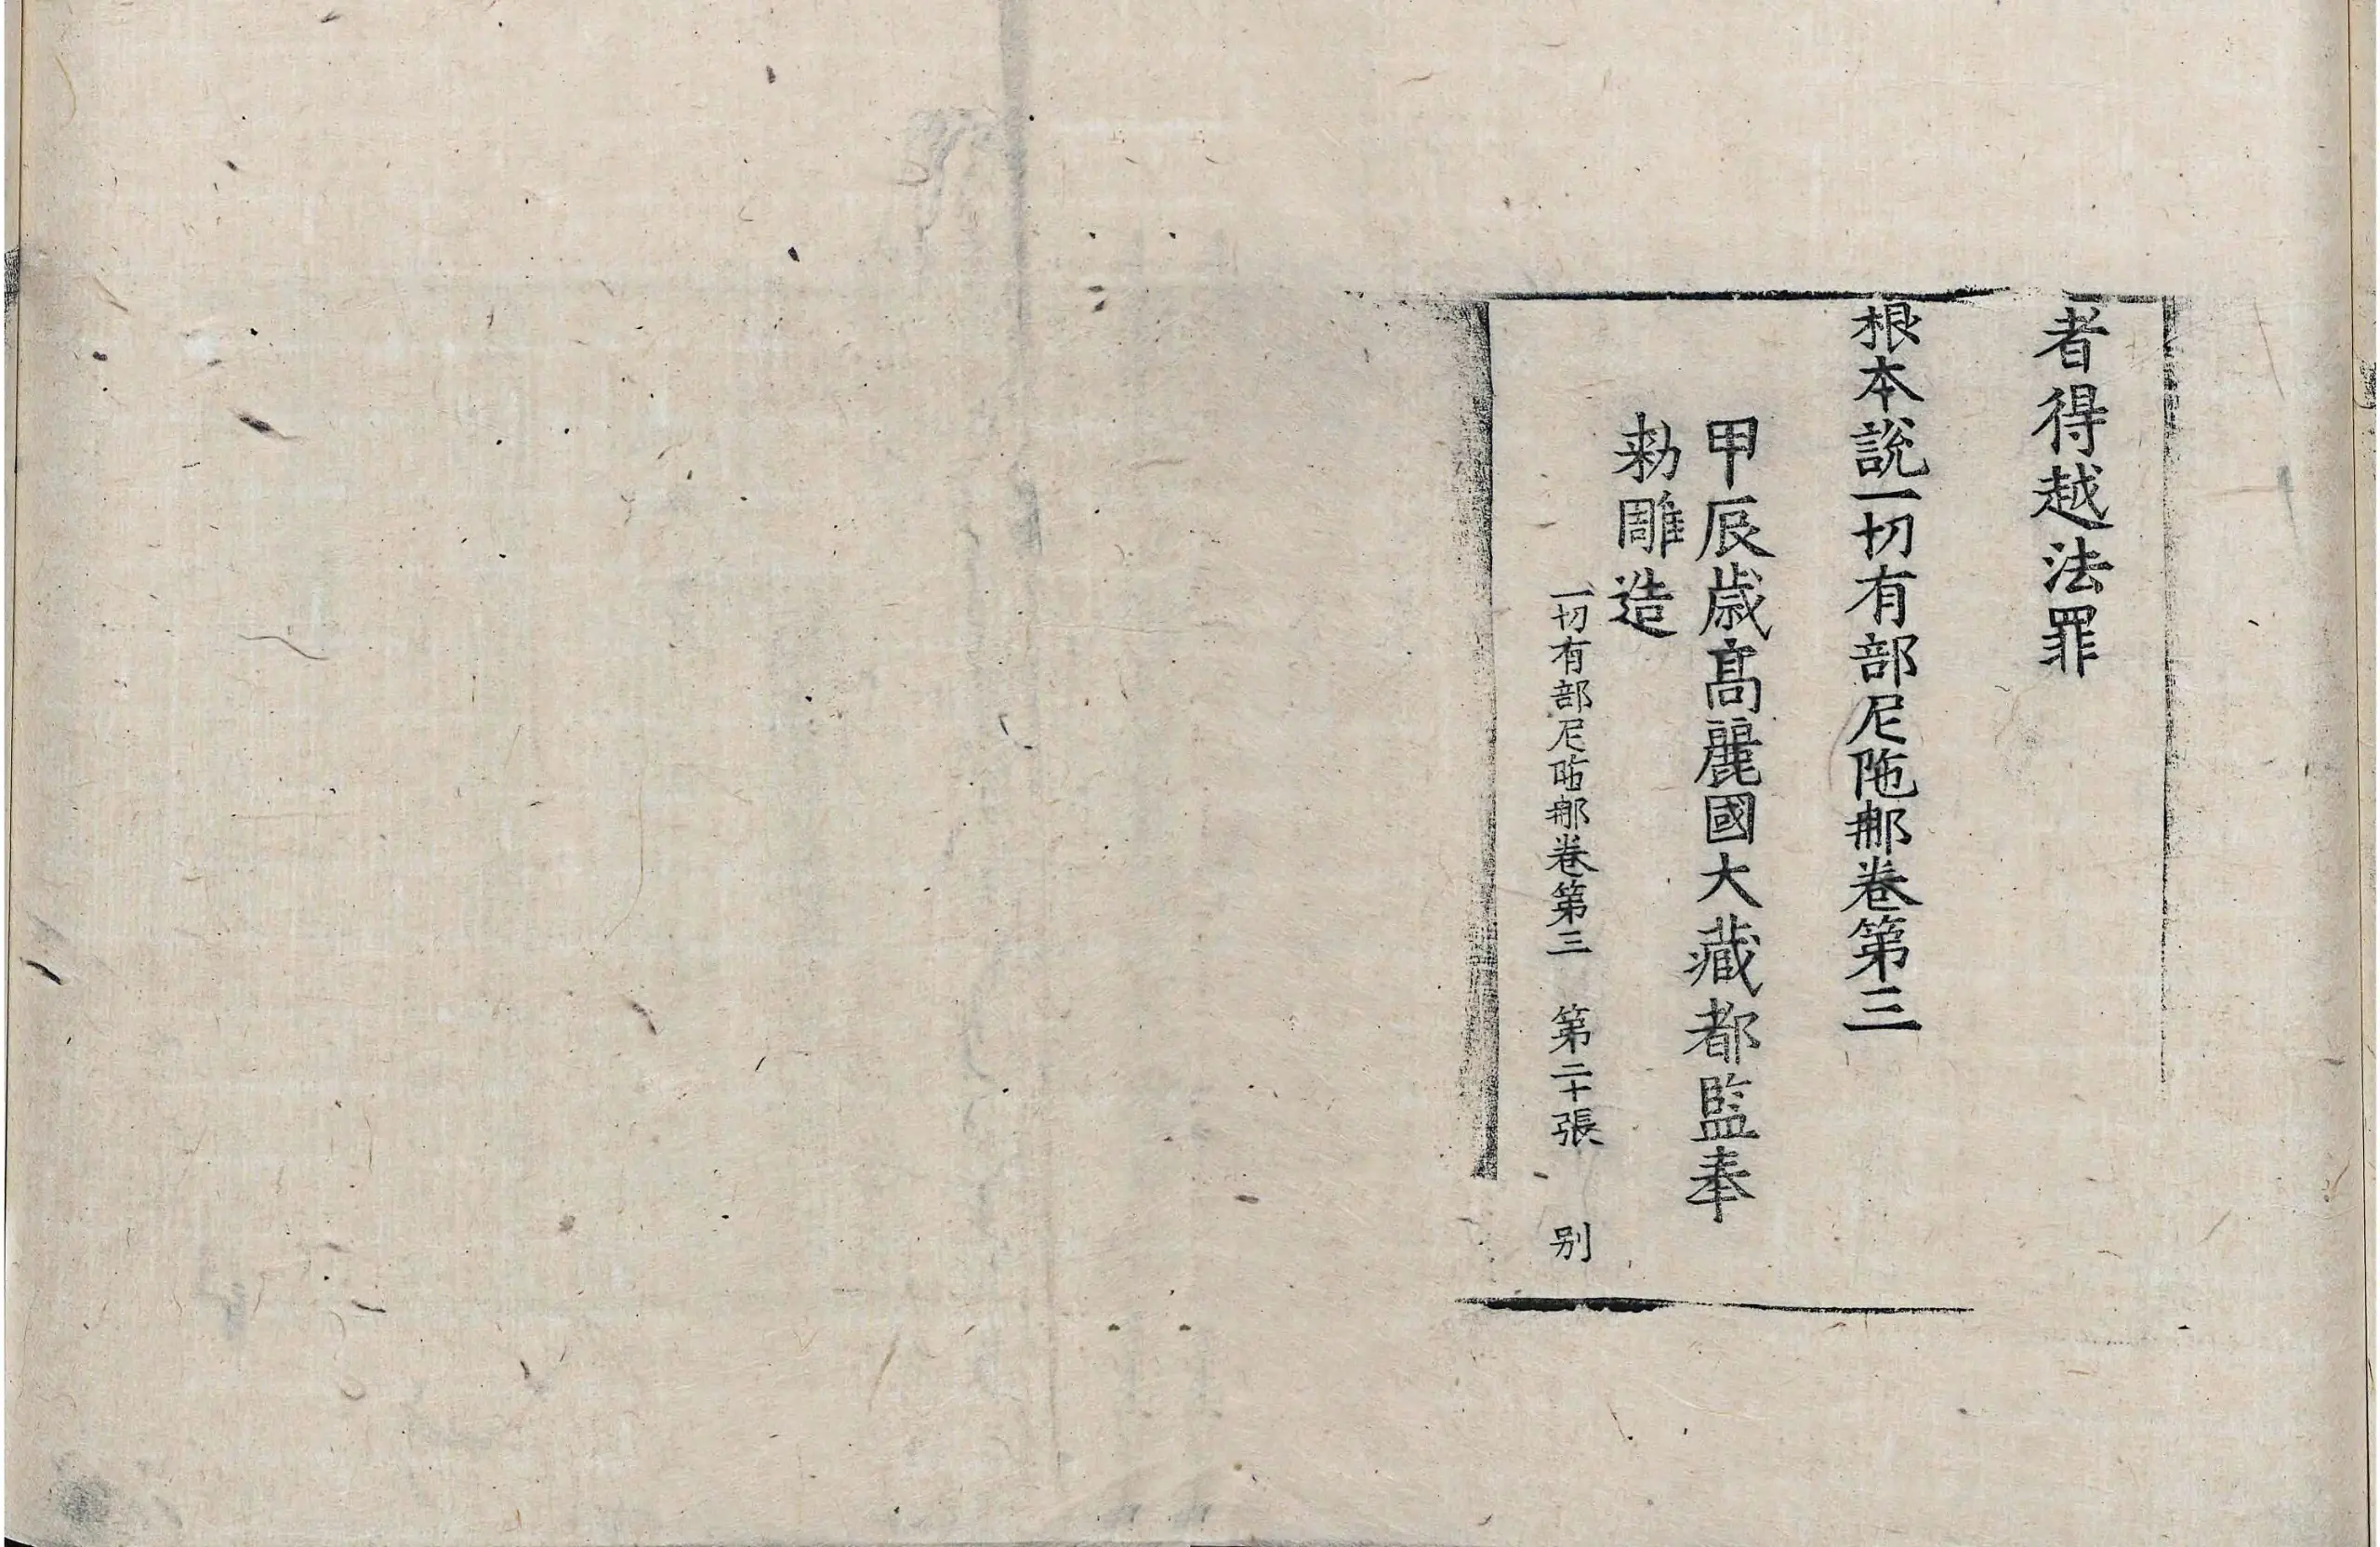 者得越法罪
根本說一切有部尼陁那卷第三
甲辰歳髙麗國大藏都監奉
勑雕造
一切有部尼陁那卷第三　第二十張　别